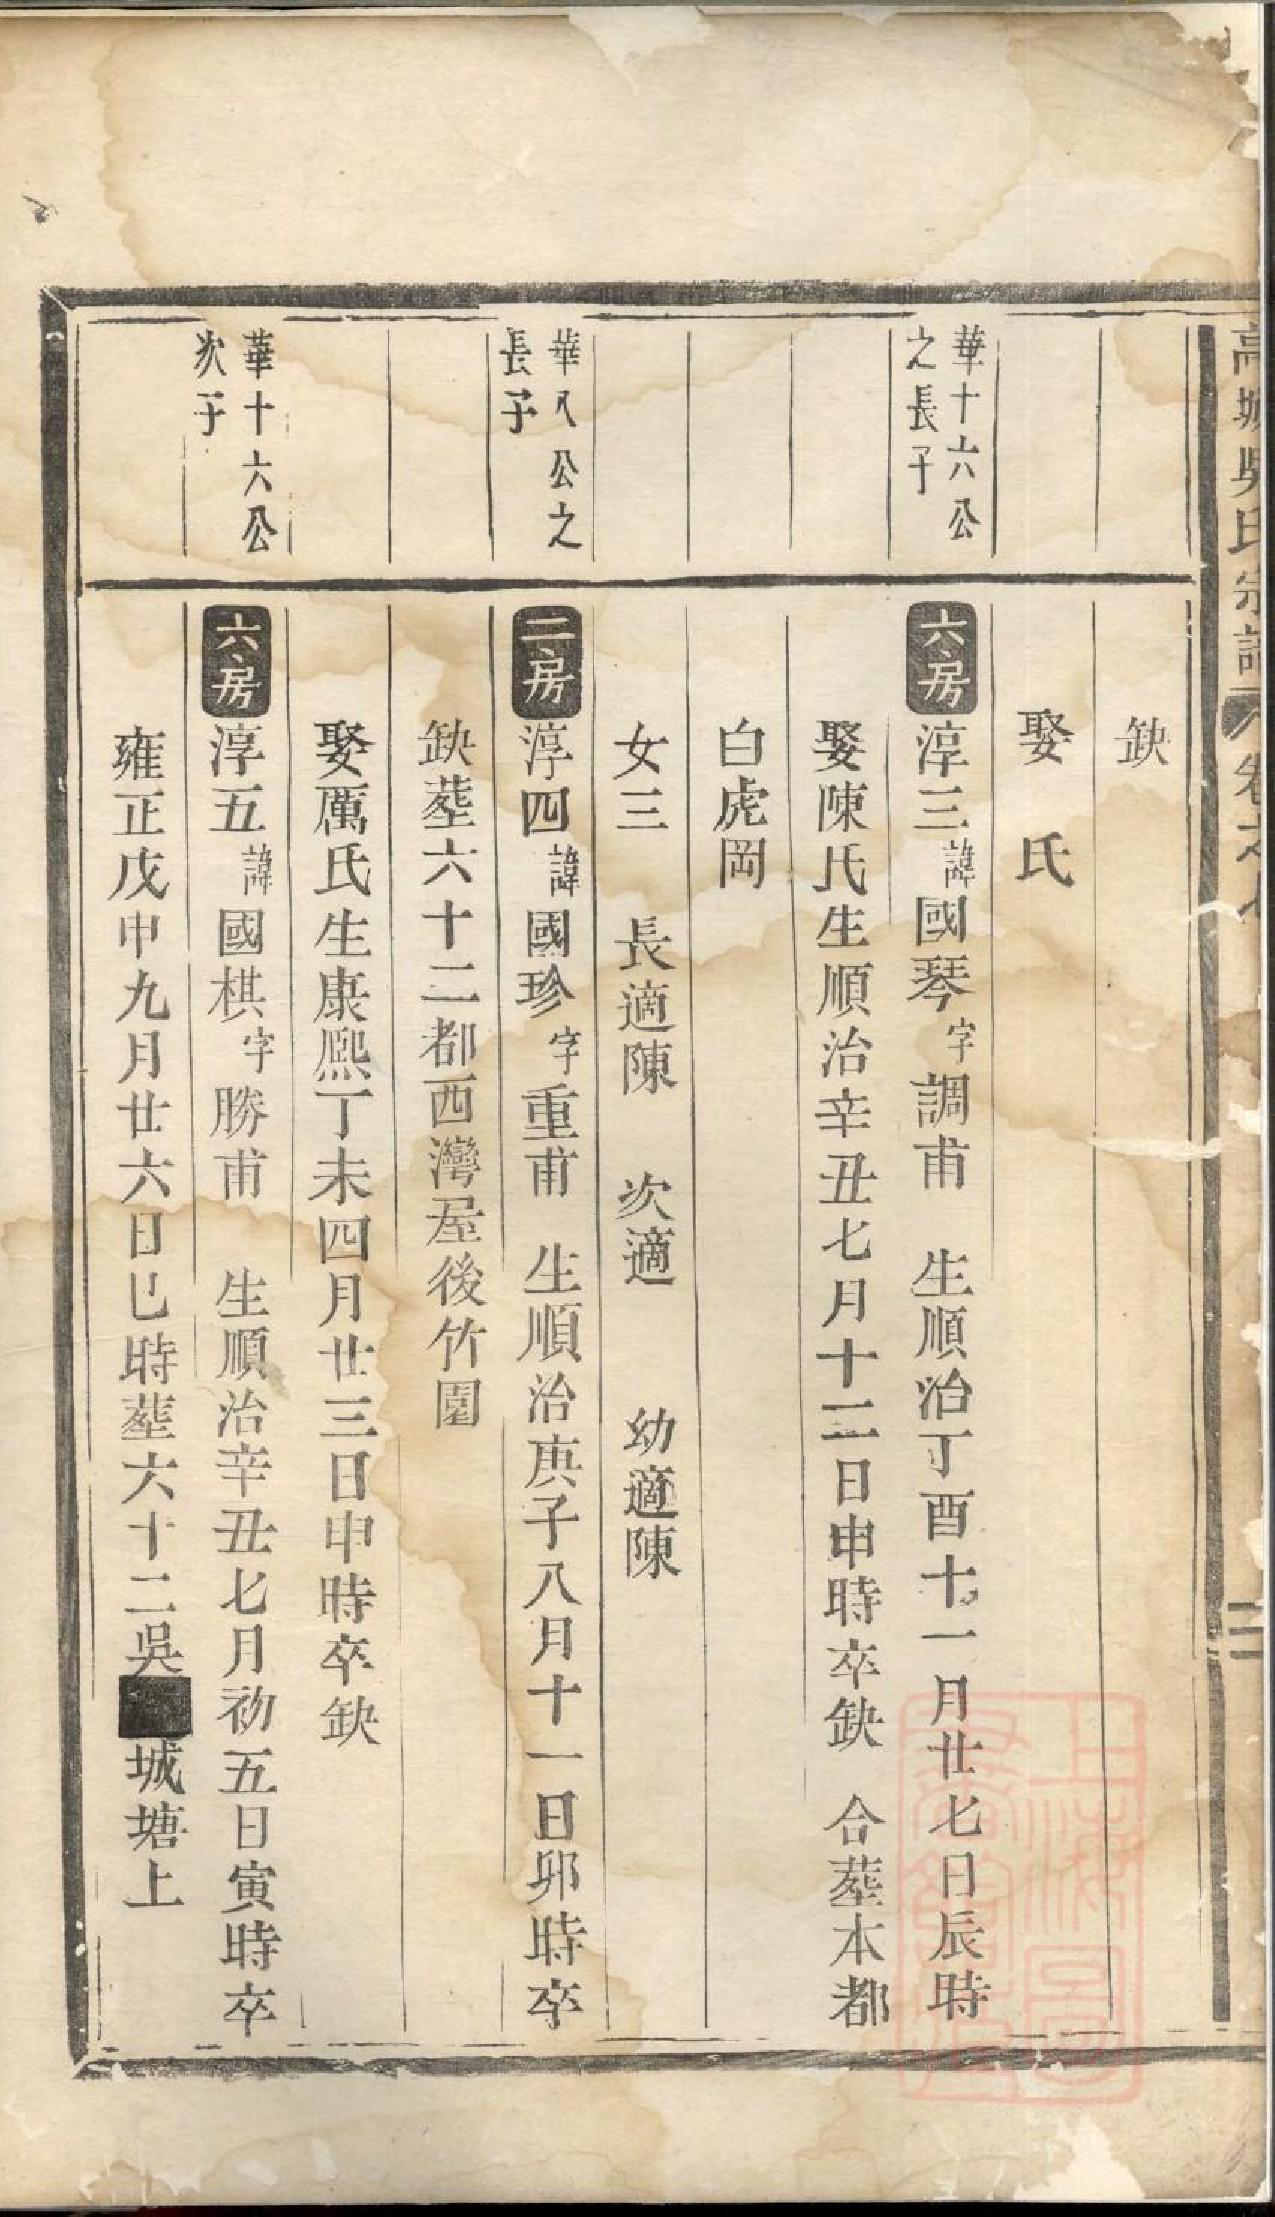 高城吳氏宗譜 卷之
二
缺
娶 氏
華十六公
之長子
六房 淳三 諱 國琴 字 調甫 生順治丁酉十一月廿七日辰時
娶陳氏生順治辛丑七月十二日申時卒缺 合塟本都
白虎岡
女三 長適陳 次適 幼適陳
華八公之
長子
二房 淳四 諱 國珍 字 重甫 生順治庚子八月十一日卯時卒
缺塟六十二都西灣屋後竹園
娶厲氏生康熙丁未四月廿三日申時卒缺
華十六公
次子
六房 淳五 諱 國棋 字 勝甫 生順治辛丑七月初五日寅時卒
雍正戊申九月廿六日巳時塟六十二吳 城塘上
上海圖書館藏